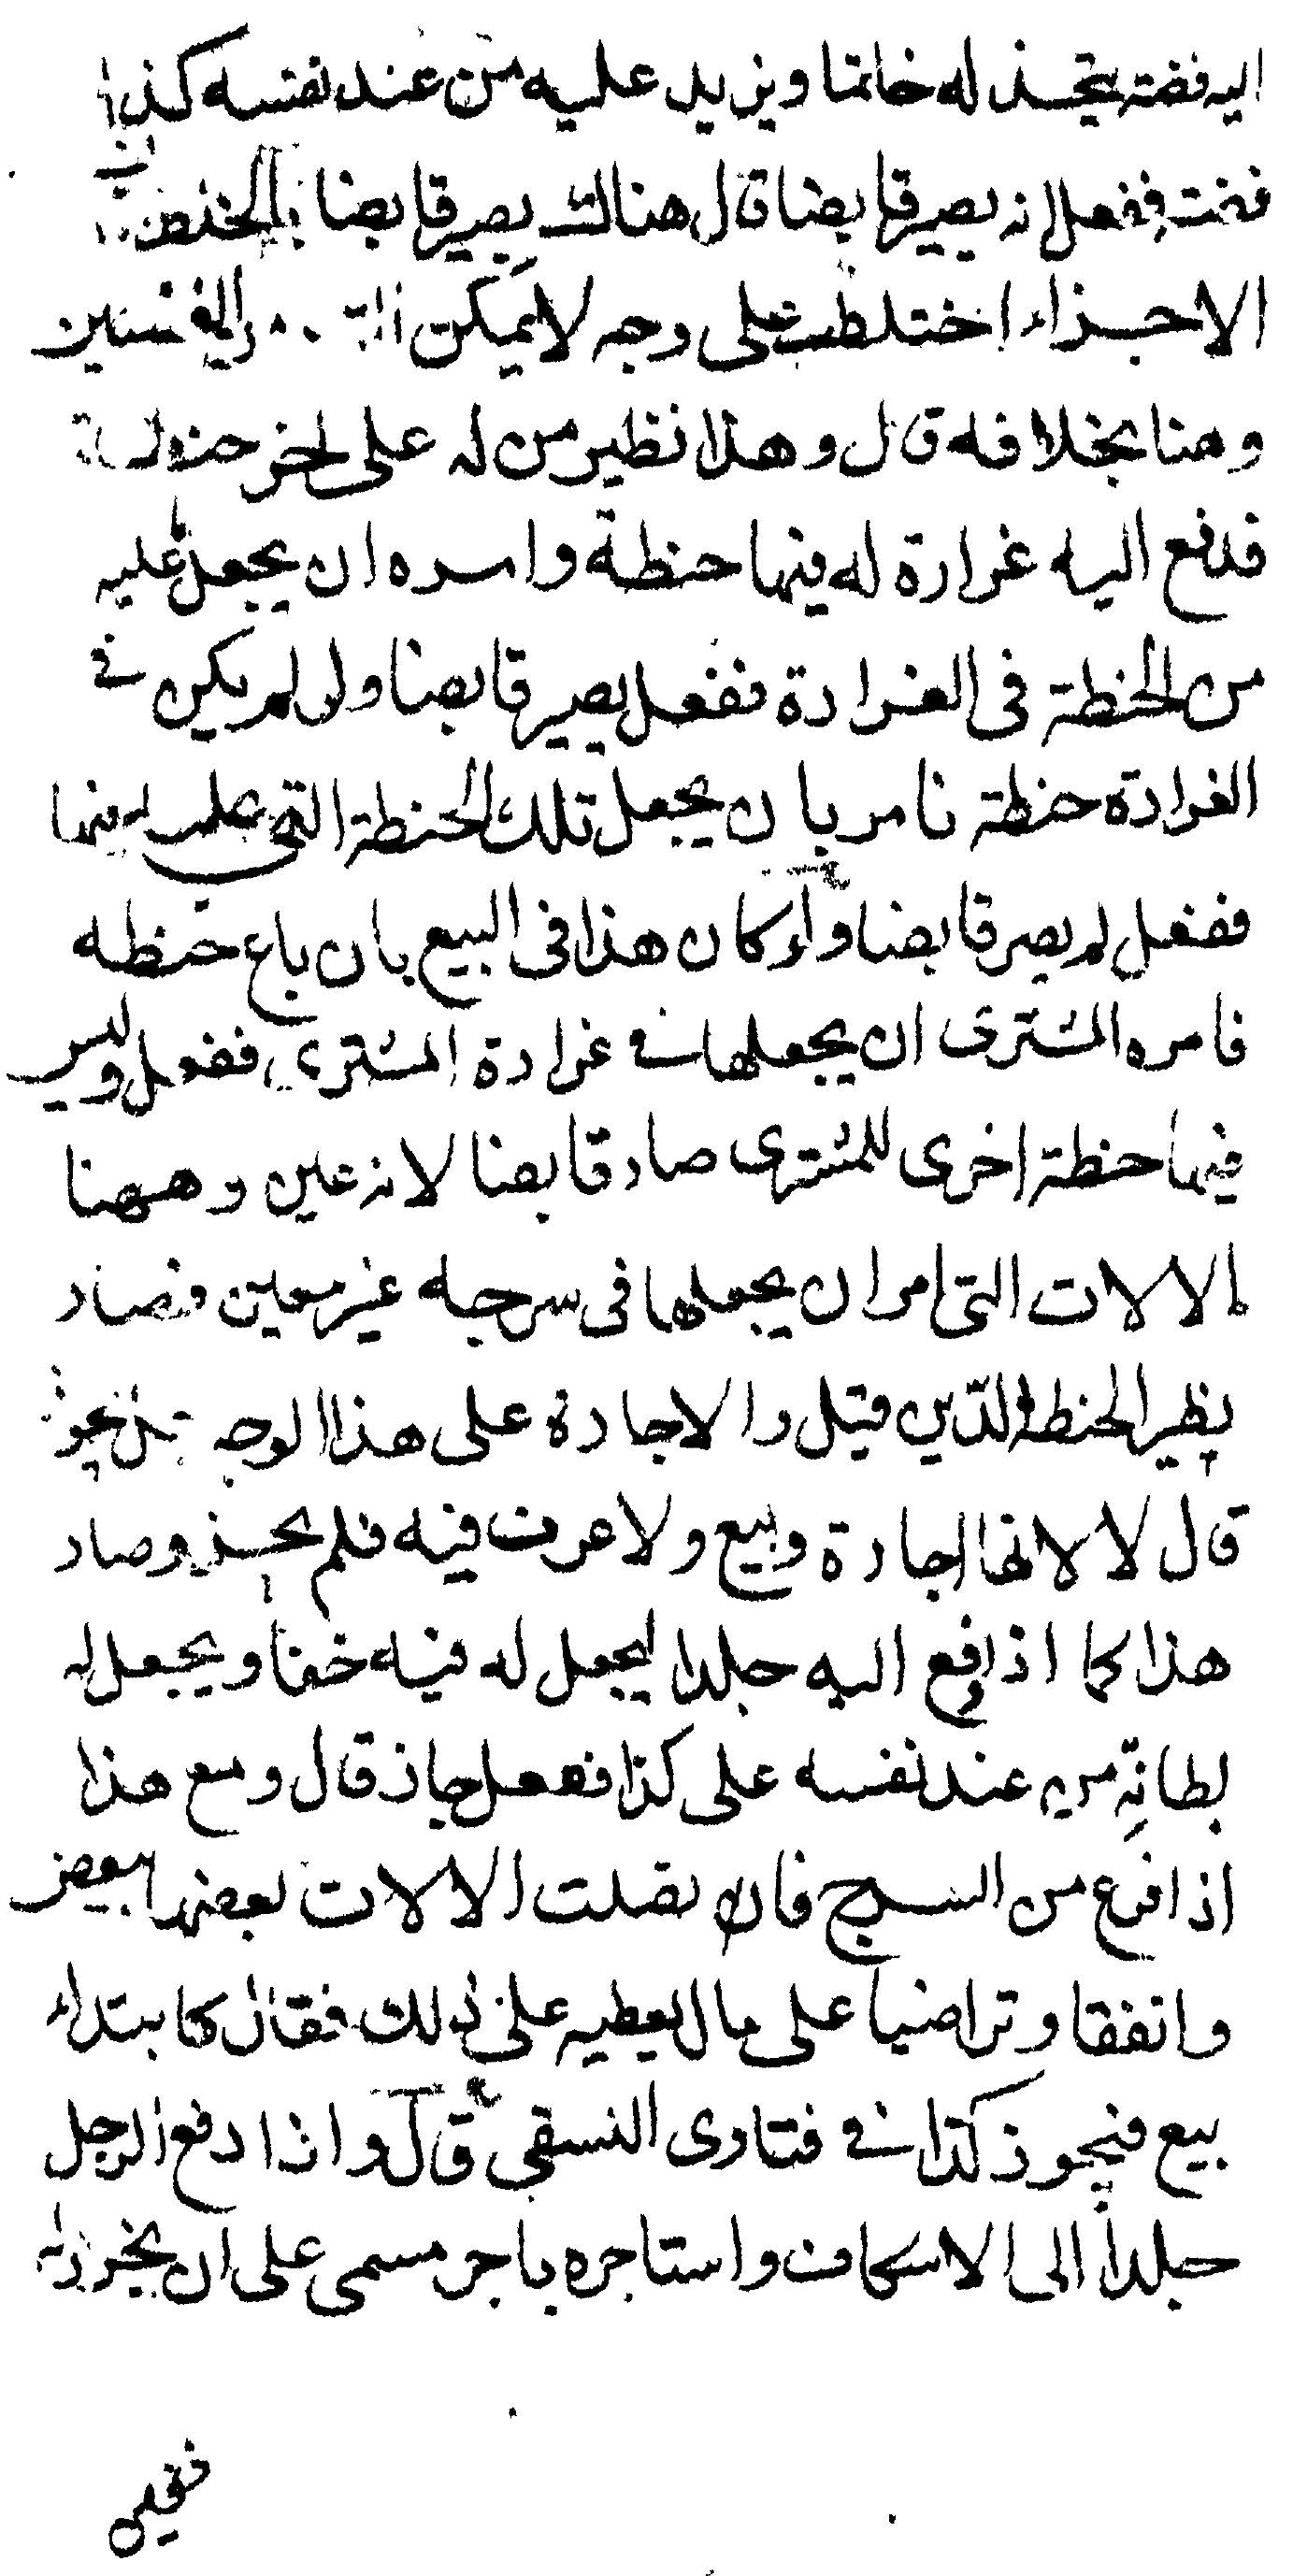 اليه فضة يتخذ له خاتما ويزيد عليه من عند نفسه كذا
فضة ففعل انه يصير قابضا قال هناك يصير قابضا بالخلط
الاجزاء اختلطت على وجه لا يمكن
وهنا بخلافه قال وهذا نظير من له على اخر حنطة
فدفع اليه غرارة له فيها حنطة وامره ان يجعل عليه
من الحنطة في الغرارة ففعل يصير قابضا ولو لم يكن في
الغرارة حنطة فامر بان يجعل تلك الحنطة التي عليه فيها
ففعل لم يصر قابضا ولو كان هذا في البيع بان باع حنطه
فامره المشترى ان يجعلها في غرارة المشترى ففعل وليس
فيها حنطة اخرى للمشترى صار قابضا لانه عين وههنا
الالات التي امر ان يجعلها في سرجه غير معين فصار
نظير الحنطة والدين قيل والاجارة على هذا الوجه هل يجوز
قال لا لانها اجارة وبيع ولا عرف فيه فلم يجز وصار
هذا كما اذا دفع اليه جلدا ليجعل له فيه خفا ويجعل له
بطانة من عند نفسه على كذا ففعل جاز قال ومع هذا
اذا فرغ من السرج فان اتصلت الالات بعضها ببعض
واتفقا وتراضيا على مال يعطيه على ذلك فقال كابتداء
بيع فيجوز كذا في فتاوى النسفي قال واذا دفع الرجل
جلدا الى الاسكاف واستاجره باجر مسمى على ان يخرزله
خفين